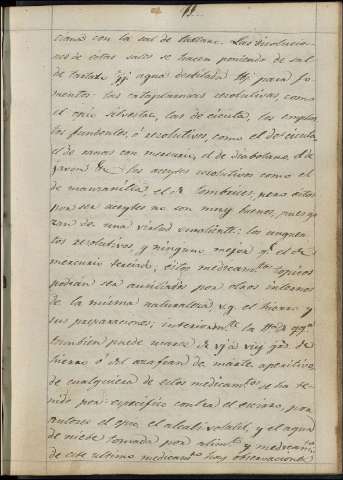 99
ciana con la sal de tártaro. Las disolucio-
nes de estas sales se hacen poniendo de sal
de tartaro ʒij agua destilada para fo-
mentos: las cataplasmas resolutivas, como
el apio silvestre, las de cicuta, los emplas.
los fundentes, ó resolutivos, como el de cicuta,
el de ranas con mercurio, el de diabotano, el de
javon &c. los aceytes resolutivos como el
de manzanilla, el de lombrices, pero estos
por ser aceytes no son muy buenos, pues go-
zan de una virtud emoliente: los unguen-
tos resolutivos, y ninguno mejor q.e el de
mercurio terciado; estos medicamtos topicos
podran ser auxiliados por otros internos
de la misma naturaleza v.g. el hierro y
sus preparaciones; interiormte la
tambien puede usarse de vj á viij gs. de
hierro, ó del azafran de marte aperitivo;
de cualquiera de estos medicamtos se ha te-
nido por especifico contra el escirro, por
autores el opio, el alcali volatil, y el agua
de nieve tomada por alimto y medicamto
de este ultimo medicamto hay observaciones